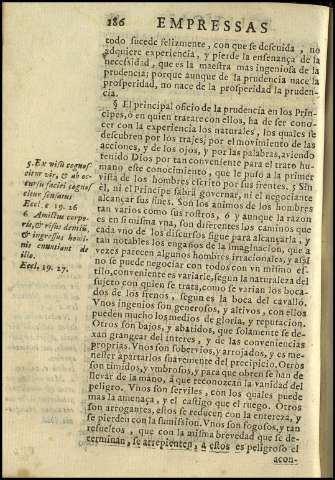 186 EMPRESSAS
todo sucede felizmente, con que se descuida, no
adquiere experiencia, y pierde la enseñança de la
necessidad, que es la maestra mas ingeniosa de la
prudencia; porque aunque de la prudencia nace la
prosperidad, no nace de la prosperidad la pruden-
cia.
§ El principal oficio de la prudencia en los Prin-
cipes, ó en quien tratare con ellos, ha de ser cono-
cer con la experiencia los naturales, los quales se
descubren por los trajes, por el movimiento de las
acciones, y de los ojos, y por las palabras, aviendo
tenido Dios por tan conveniente para el trato hu-
mano este conocimiento, que le puso a la primer
vista de los hombres escrito por sus frentes, 5 Sin
él, ni el Principe sabrá governar, ni el negociante
alcançar sus fines. Son los animos de los hombres
tan varios como sus rostros, 6 y aunque la razon
es en si misma vna, son diferentes los caminos que
cada vno de los discursos sigue para alcançarla, y
tan notables los engaños de la imaginacion, que a
vezes parecen algunos hombres irracionales, y assi
no se puede negociar con todos con vn mismo es-
tilo, conveniente es variarle, segun la naturaleza del
sujeto con quien se trata, como se varian los boca-
dos de los frenos, segun es la boca del cavallo.
Vnos ingenios son generosos, y altivos, con ellos
pueden mucho los medios de gloria, y reputacion.
Otros son bajos, y abatidos, que solamente se de-
xan grangear del interes, y de las conveniencias
proprias. Vnos son sobervios, y arrojados, y es me-
nester apartarlos suavemente del precipicio. Otros
son timidos, y vmbrosos, y para que obren se han de
llevar de la mano, a que reconozcan la vanidad del
peligro. Vnos son serviles, con los quales puede
mas la amenaça, y el castigo que el ruego. Otros
son arrogantes, estos se reducen con la entereza, y
se pierden con la sumission. Vnos son fogosos, y tan
resueltos, que con la misma brevedad que se de-
terminan, se arrepienten, a estos es peligroso el
acon-
5. Ex visu cognos-
citur vir, & ab oc-
cursu faciei cognos-
citur sensatus
Eccl c 19. 26
6. Amictus corpo-
ris, & risus dentiũ,
& ingressus homi-
nis enuntiant de
illo.
Eccl. 19. 27.